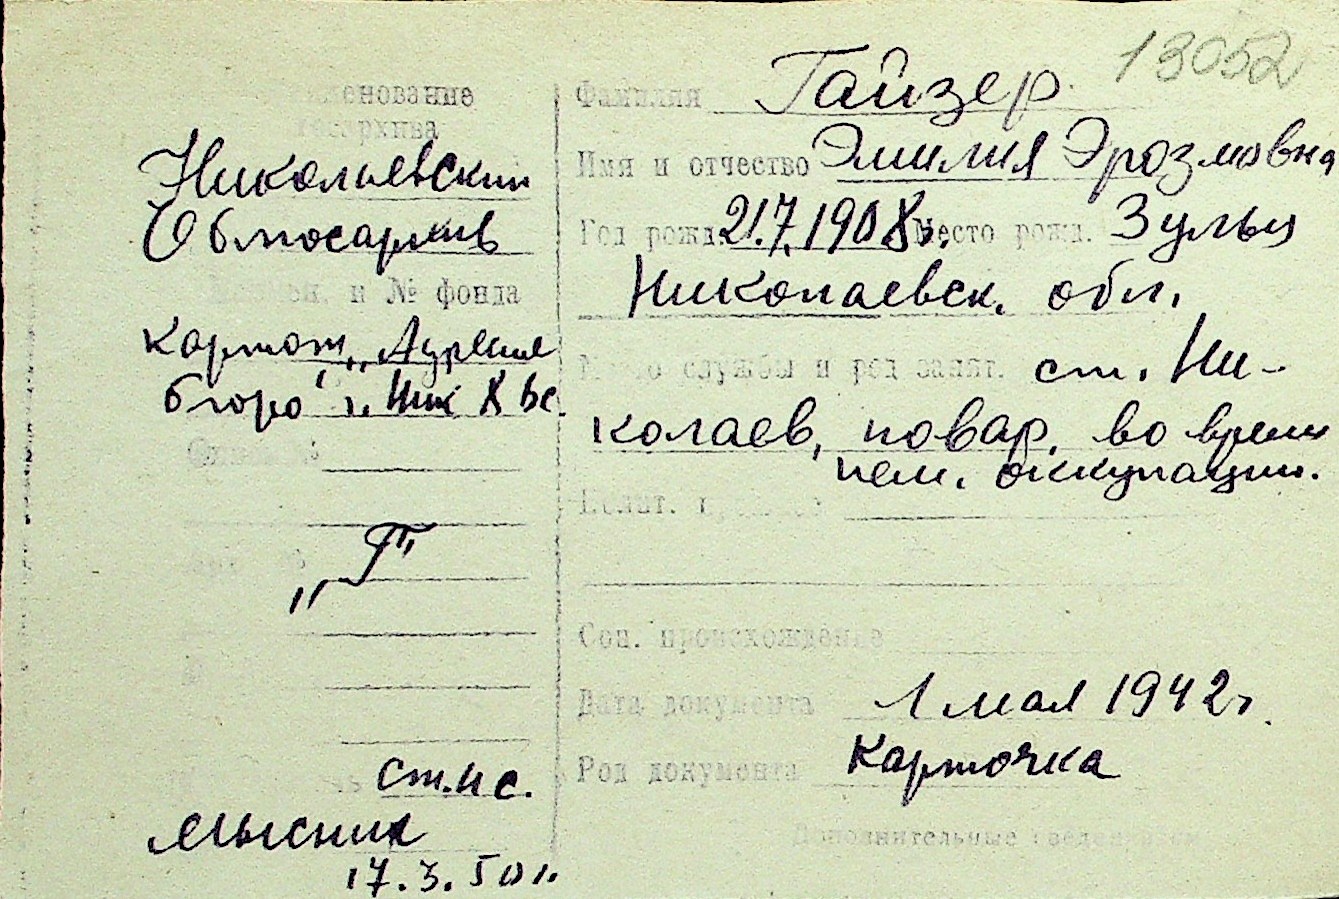 13052
Наименование
госархива
Николаевский
Облгосархив
и № фонда
картот. „Адресное
бюро" г. Ник
„Г"
ст. н с.
Мысник
17.3.50 г.
Фамилия Гайзер
Имя и отчество Эмилия Эрозмовна
Год рожд. 21.7.1908 г. Место рожд. Зульц
Николаевск. обл.
Место службы и род занят. ст. Ни-
колаев, повар, во время
нем. оккупации.
Полит.
Соц. происхождение
Дата документа 1 мая 1942 г.
Род документа Карточка
Дополнительные сведения см